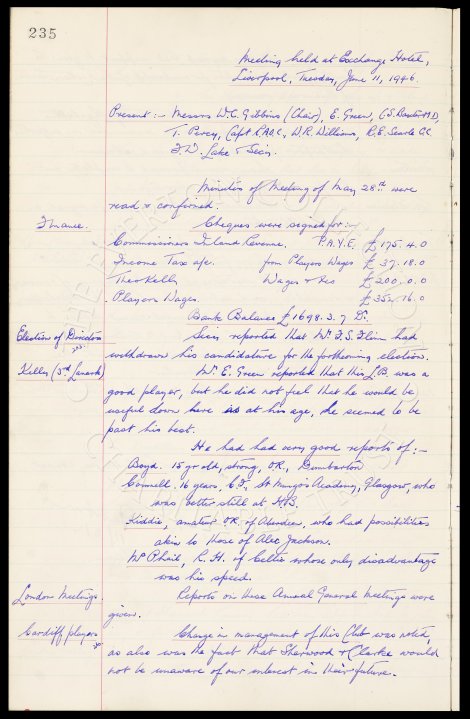 235
Meeting held at Exchange Hotel,
Liverpool, Tuesday, June 11, 1946.
Present :- Messrs W.C. Gibbins (Chair), E. Green, C.S. Baxter M.D,
T. Percy, Capt R.A.A.C., W.R. Williams, R.E. Searle CC
F.W. Lake & Secy.
Minutes of Meeting of May 28th were
read & confirmed.
Finance. Cheques were signed for:-
Commissioners Inland Revenue. P.A.Y.E. £175.4.0
Income Tax a/c. from Players Wages £ 37.18.0
Theo Kelly Wages & Fees £ 200.0.0
Players Wages. £ 352.16.0
Bank Balance £1698.3.7 Dr.
Election of Directors Secy reported that Mr. F.S. Flinn had
withdrawn his candidature for the forthcoming election.
Kelly (3rd Lanark) Mr. E. Green reported that this L.B. was a
good player, but he did not feel that he would be
useful down here as at his age, he seemed to be
past his best.
He had had very good reports of :-
Boyd. 15 yr old, strong, O.R., Dumbarton
Connell 16 years, C.F., St Mungo's Academy, Glasgow, who
was better still at H.B.
Kiddie, amateur O.R. of Aberdeen, who had possibilities
akin to those of Alec Jackson.
McPhail, R.H. of Celtic whose only disadvantage
was his speed.
London Meetings. Reports on these Annual General Meetings were
given.
Cardiff players Change in management of this Club was noted,
as also was the fact that Sherwood & Clarke would
not be unaware of our interest in their future.